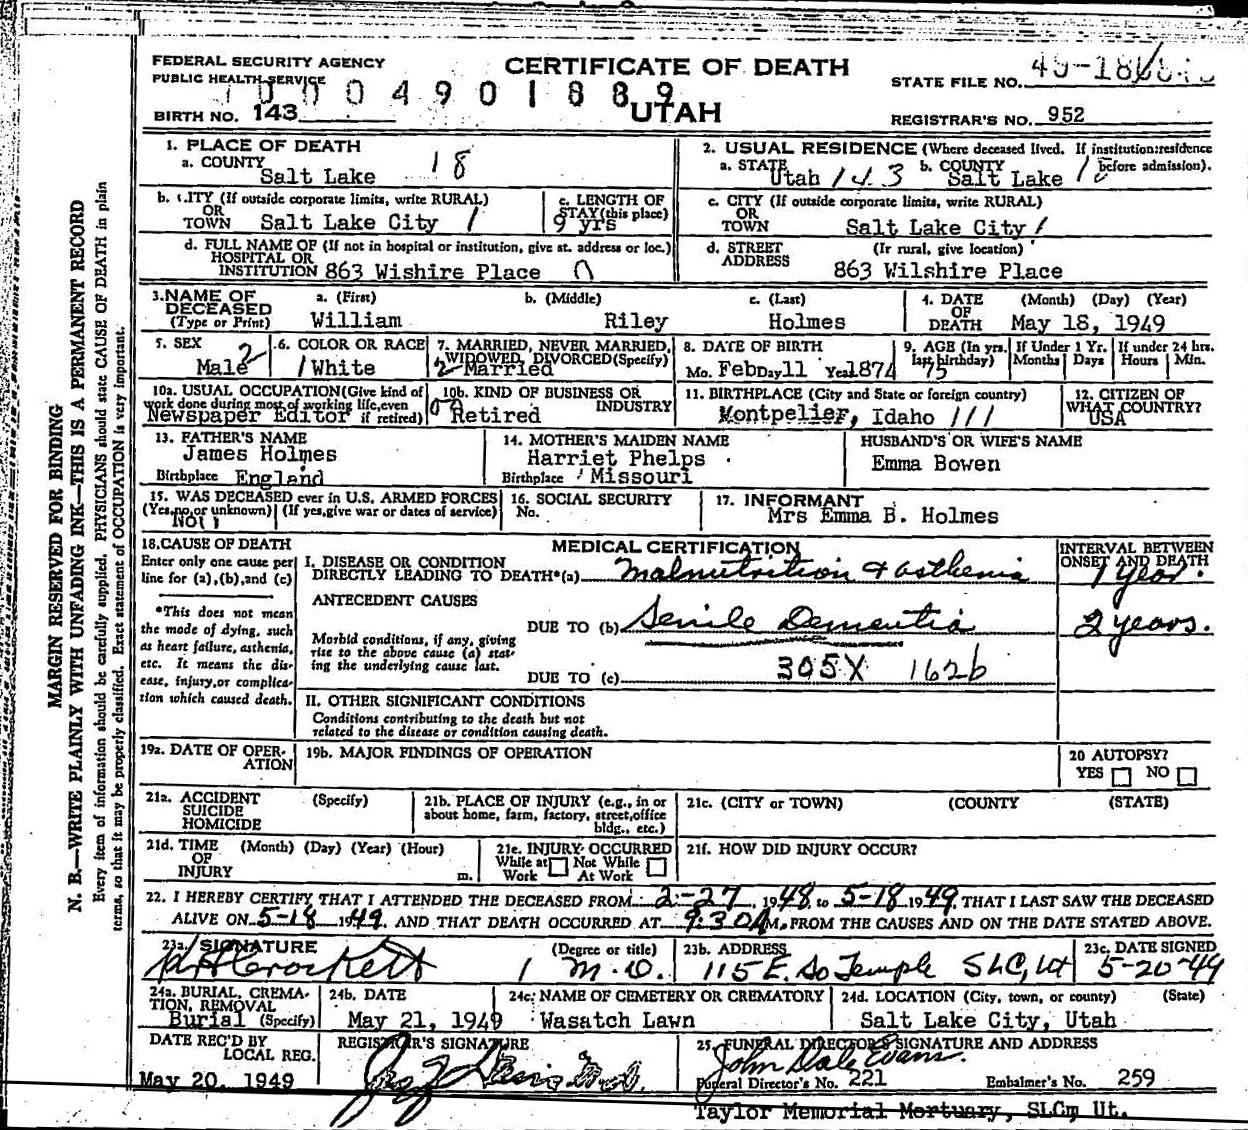 FEDERAL SECURITY AGENCY
PUBLIC HEALTH SERVICE
CERTIFICATE OF DEATH
STATE FILE NO.
UTAH
BIRTH NO. 143
REGISTRAR'S NO. 952
1. PLACE OF DEATH
a. COUNTY
Salt Lake 18
2. USUAL RESIDENCE (Where deceased lived. If institution:residence before admission).
a. STATE b. COUNTY
Utah 143 Salt Lake
b. CITY (If outside corporate limits, write RURAL)
OR
TOWN Salt Lake City 1
c. LENGTH OF
STAY (this place)
9 yrs
c. CITY (If outside corporate limits, write RURAL)
OR
TOWN Salt Lake City 1
d. FULL NAME OF (If not in hospital or institution, give st. address or loc.)
HOSPITAL OR
INSTITUTION 863 Wishire Place 0
d. STREET (Ir rural, give location)
ADDRESS
863 Wilshire Place
3. NAME OF DECEASED
(Type or Print)
a. (First) b. (Middle) c. (Last)
William Riley Holmes
4. DATE OF DEATH (Month) (Day) (Year)
May 18, 1949
5. SEX
Male 2
6. COLOR OR RACE
1 White
7. MARRIED, NEVER MARRIED,
WIDOWED, DIVORCED(Specify)
2 Married
8. DATE OF BIRTH
Mo. Feb Day 11 Year 1874
9. AGE (In yrs. last birthday)
75
If Under 1 Yr.
Months Days
If under 24 hrs.
Hours Min.
10a. USUAL OCCUPATION(Give kind of
work done during most of working life,even
if retired)
Newspaper Editor
10b. KIND OF BUSINESS OR
INDUSTRY
Retired
11. BIRTHPLACE (City and State or foreign country)
Montpelier, Idaho 111
12. CITIZEN OF
WHAT COUNTRY?
USA
13. FATHER'S NAME
James Holmes
Birthplace England
14. MOTHER'S MAIDEN NAME
Harriet Phelps
Birthplace Missouri
HUSBAND'S OR WIFE'S NAME
Emma Bowen
15. WAS DECEASED ever in U.S. ARMED FORCES
(Yes,no,or unknown) (If yes,give war or dates of service)
No
16. SOCIAL SECURITY
No.
17. INFORMANT
Mrs Emma B. Holmes
18.CAUSE OF DEATH
Enter only one cause per
line for (a),(b),and (c)
*This does not mean
the mode of dying, such
as heart failure, asthenia,
etc. It means the dis-
ease, injury,or complica-
tion which caused death.
MEDICAL CERTIFICATION
I. DISEASE OR CONDITION
DIRECTLY LEADING TO DEATH*(a) malnutrition & asthenia
ANTECEDENT CAUSES
DUE TO (b) Senile Dementia
Morbid conditions, if any, giving
rise to the above cause (a) stat-
ing the underlying cause last.
305X 162b
DUE TO (c)
INTERVAL BETWEEN
ONSET AND DEATH
1 year.
2 years.
II. OTHER SIGNIFICANT CONDITIONS
Conditions contributing to the death but not
related to the disease or condition causing death.
19a. DATE OF OPER-
ATION
19b. MAJOR FINDINGS OF OPERATION
20 AUTOPSY?
YES NO
21a. ACCIDENT (Specify)
SUICIDE
HOMICIDE
21b. PLACE OF INJURY (e.g., in or
about home, farm, factory, street,office
bldg., etc.)
21c. (CITY or TOWN) (COUNTY (STATE)
21d. TIME (Month) (Day) (Year) (Hour)
OF
INJURY m.
21e. INJURY OCCURRED
While at Work Not While At Work
21f. HOW DID INJURY OCCUR?
22. I HEREBY CERTIFY THAT I ATTENDED THE DECEASED FROM 2-27, 1948 to 5-18 1949, THAT I LAST SAW THE DECEASED
ALIVE ON 5-18 1949. AND THAT DEATH OCCURRED AT 9:30 A M, FROM THE CAUSES AND ON THE DATE STATED ABOVE.
23a. SIGNATURE (Degree or title)
Crockett 1 M.D.
23b. ADDRESS
115 E. So Temple SLC, Ut
23c. DATE SIGNED
5-20-49
24a. BURIAL, CREMA-
TION, REMOVAL
Burial (Specify)
24b. DATE
May 21, 1949
24c. NAME OF CEMETERY OR CREMATORY
Wasatch Lawn
24d. LOCATION (City, town, or county) (State)
Salt Lake City, Utah
DATE REC'D BY
LOCAL REG.
May 20 1949
REGISTRAR'S SIGNATURE
25. FUNERAL DIRECTOR'S SIGNATURE AND ADDRESS
John Dale Evans.
Funeral Director's No. 221 Embalmer's No. 259
Taylor Memorial Mortuary, SLCm Ut.
MARGIN RESERVED FOR BINDING
N. B.—WRITE PLAINLY WITH UNFADING INK—THIS IS A PERMANENT RECORD
Every item of information should be carefully supplied. PHYSICIANS should state CAUSE OF DEATH in plain
terms, so that it may be properly classified. Exact statement of OCCUPATION is very important.